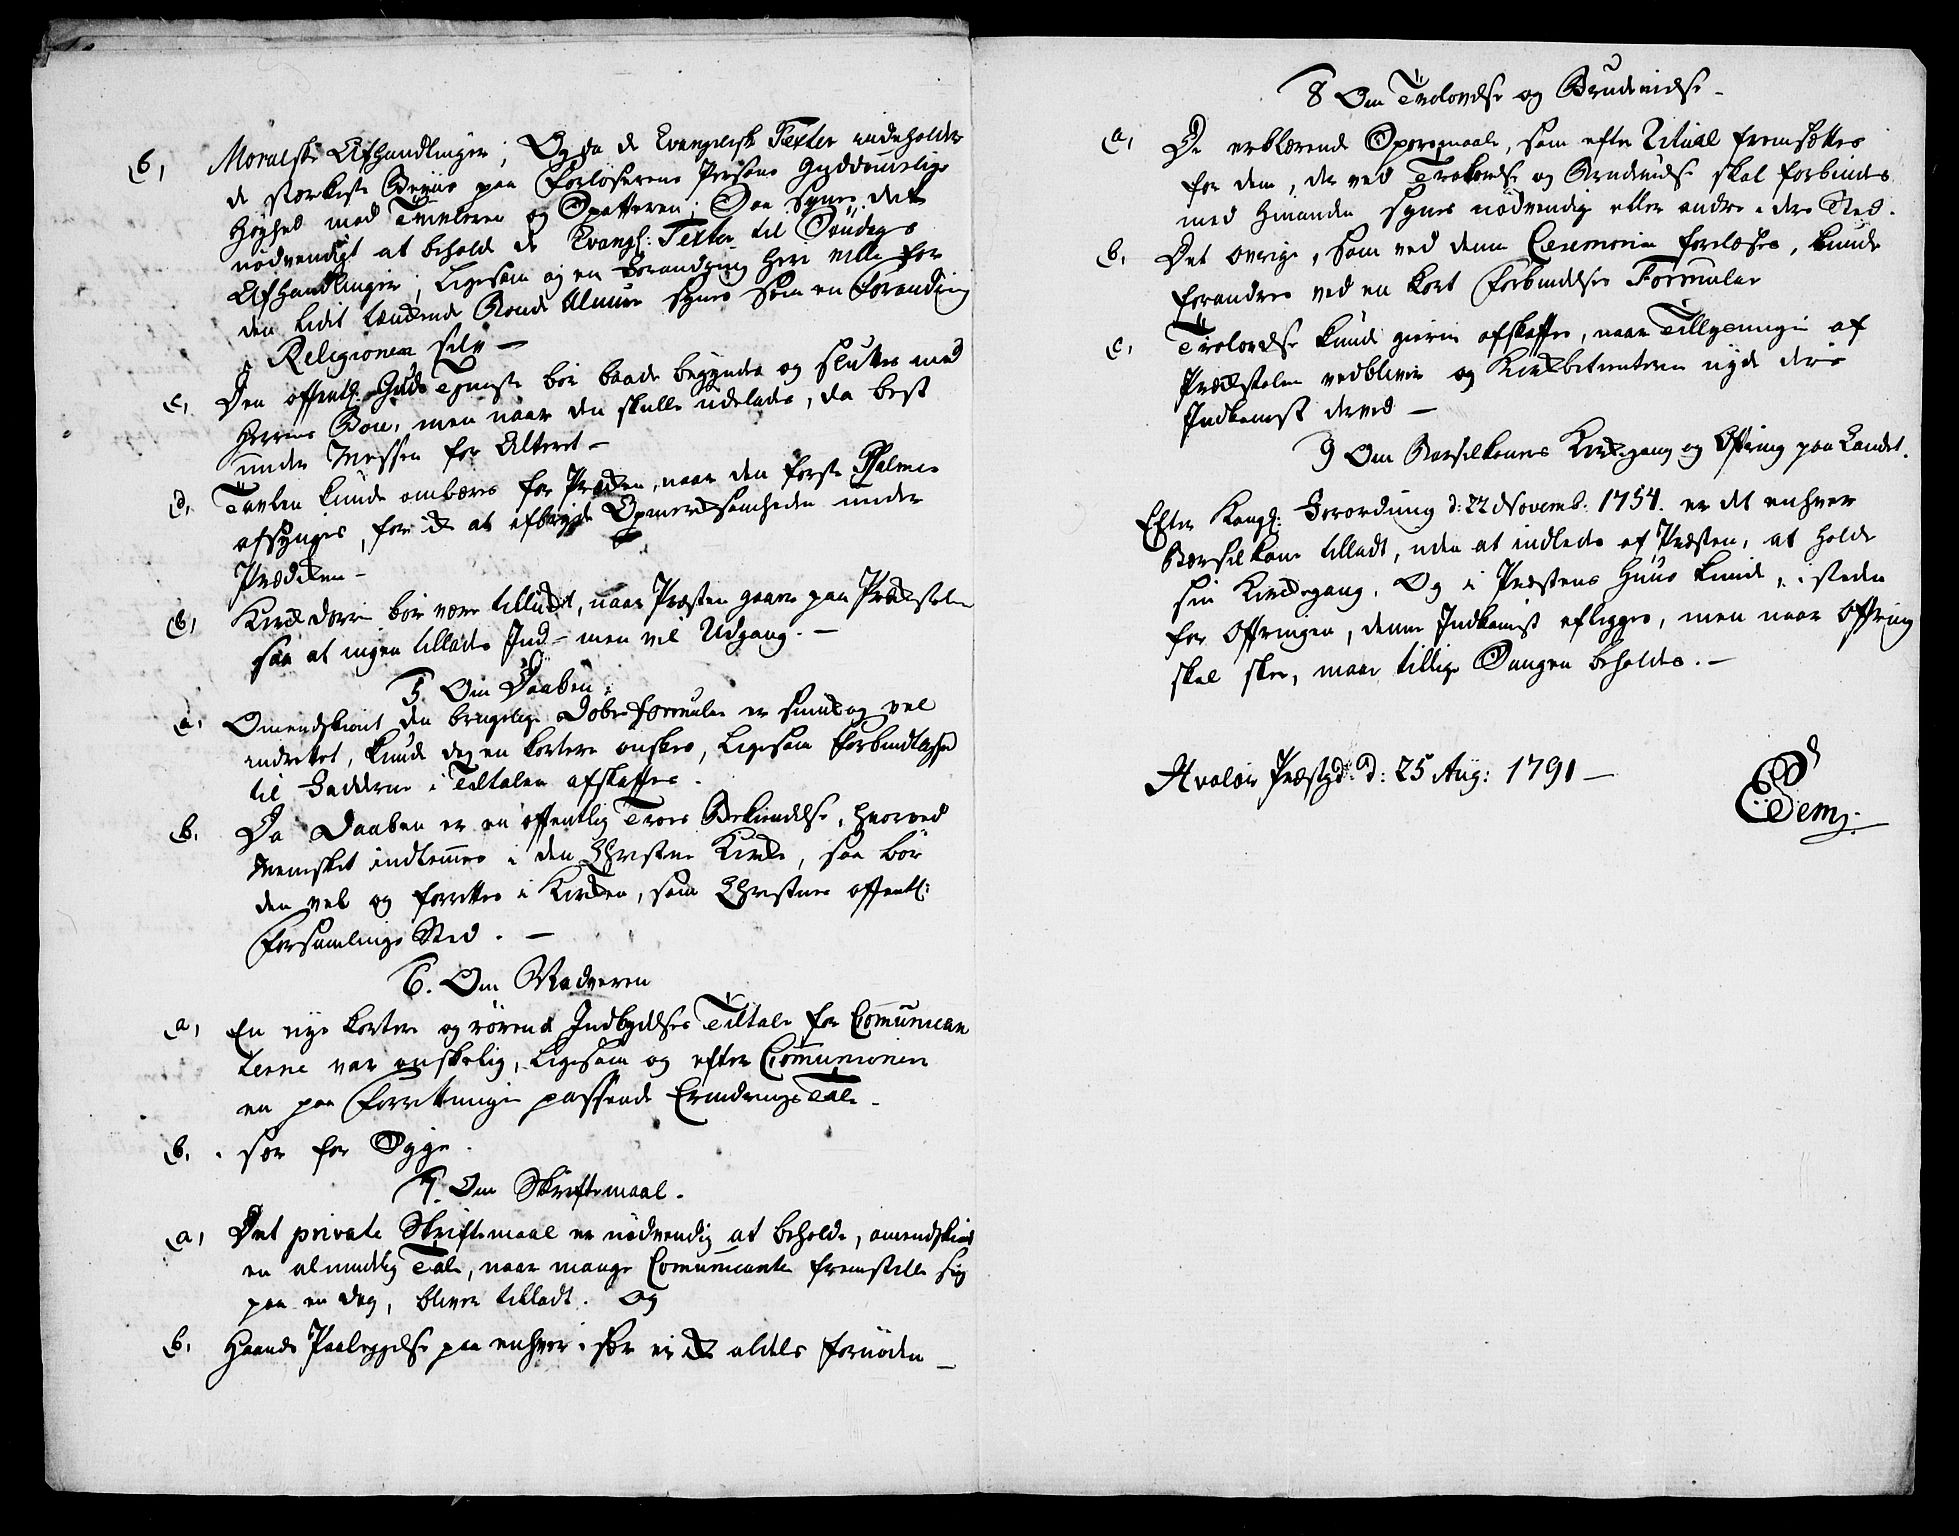 b, Moralske Afhandlinger; Og da de Evangeliske Texter indeholder
de störkeste Beviis paa Forloserens Persons Guddommelige
Höyhed mod Tvivleren og Spotteren; Saa synes det
nödvendigt at beholde de Evangl: Texter til Söndags
Afhandlinger, Ligesom og en Forandring heri ville for
den lidet tænkende Bonde Almue synes som en Forandring
i Religionen selv —
c, Den offentl: Guds Tjeneste bör baade begyndes og sluttes med
Herrens Bön, men naar den skulle udelades, da best
under Messen for Alteret —
d, Tavlen kunde ombæres for Prædiken, naar den förste Psalme
afsynges, for ik at afbryde Opmerksomheden under
Prædiken —
e, Kirkdörren bör være tillukt, naar Præsten gaaer paa Prækestolen
saa at ingen tillades Ind- men vel Udgang. —
5 Om Daaben.
a, Omendskiönt den brugelige Dobe formular er smuk og vel
indrettet, kunde dog en kortere önskes, Ligesom Forbindtligh
til Fadderne i Tiltalen afskaffes.
b. Da Daaben er en offentlig Troes Bekiendelse, hvorved
Mennisket indlemmes i den Christne Kirke, saa bör
den vel og forrettes i Kirken, som Christnes offentl:
Forsamlings Sted. —
6. Om Nadveren
a, En nye kortere og rörende Indbydelses Tiltale for Communican
terne var önskelig, Ligesom og efter Communionen
en paa Forretningen passende Erindrings Tale.
b. i sær for Syge.
7. Om Skriftemaal.
a, Det private Skriftemaal er nödvendig at beholde, omendskiönt
en almindelig Tale, naar mange Communicantere fremstille sig
paa en dag, bliver tilladt. Og
b. Haands Paaleggelse paa enhver i sær er ik aldeles fornöden —
8 Om Trolovelse og Brudevielse —
a, De erklærende Spörsmaale, som efter Ritual fremsættes
for dem, der ved Trolovelse og Brudevielse skal forbindes
med hinanden synes nödvendig eller andre i deres Sted.
b. Det övrige, som ved denne Ceremonie forelæses, kunde
forandres ved en kort Forbindelses Formular
c, Trolovelse kunde gierne afskaffes, naar Tillysningen af
Prækestolen vedbliver og Kirkebetienterne nyde deres
Indkomst derved —
9 Om Barselkoners Kirkegang og Offring paa Landet.
Efter Kongl: Forordning d: 22 Novemb. 1754. er det enhver
Barselkone tilladt, uden at indledes af Præsten, at holde
sin Kirkegang, Og i Præstens Huus kunde, i steden
for Offringen, denne Indkomst aflegges, men naar Offring
skal skee, maae tillige Sangen beholdes. —
Hvalöer Præstgd: d: 25 Aug: 1791 —